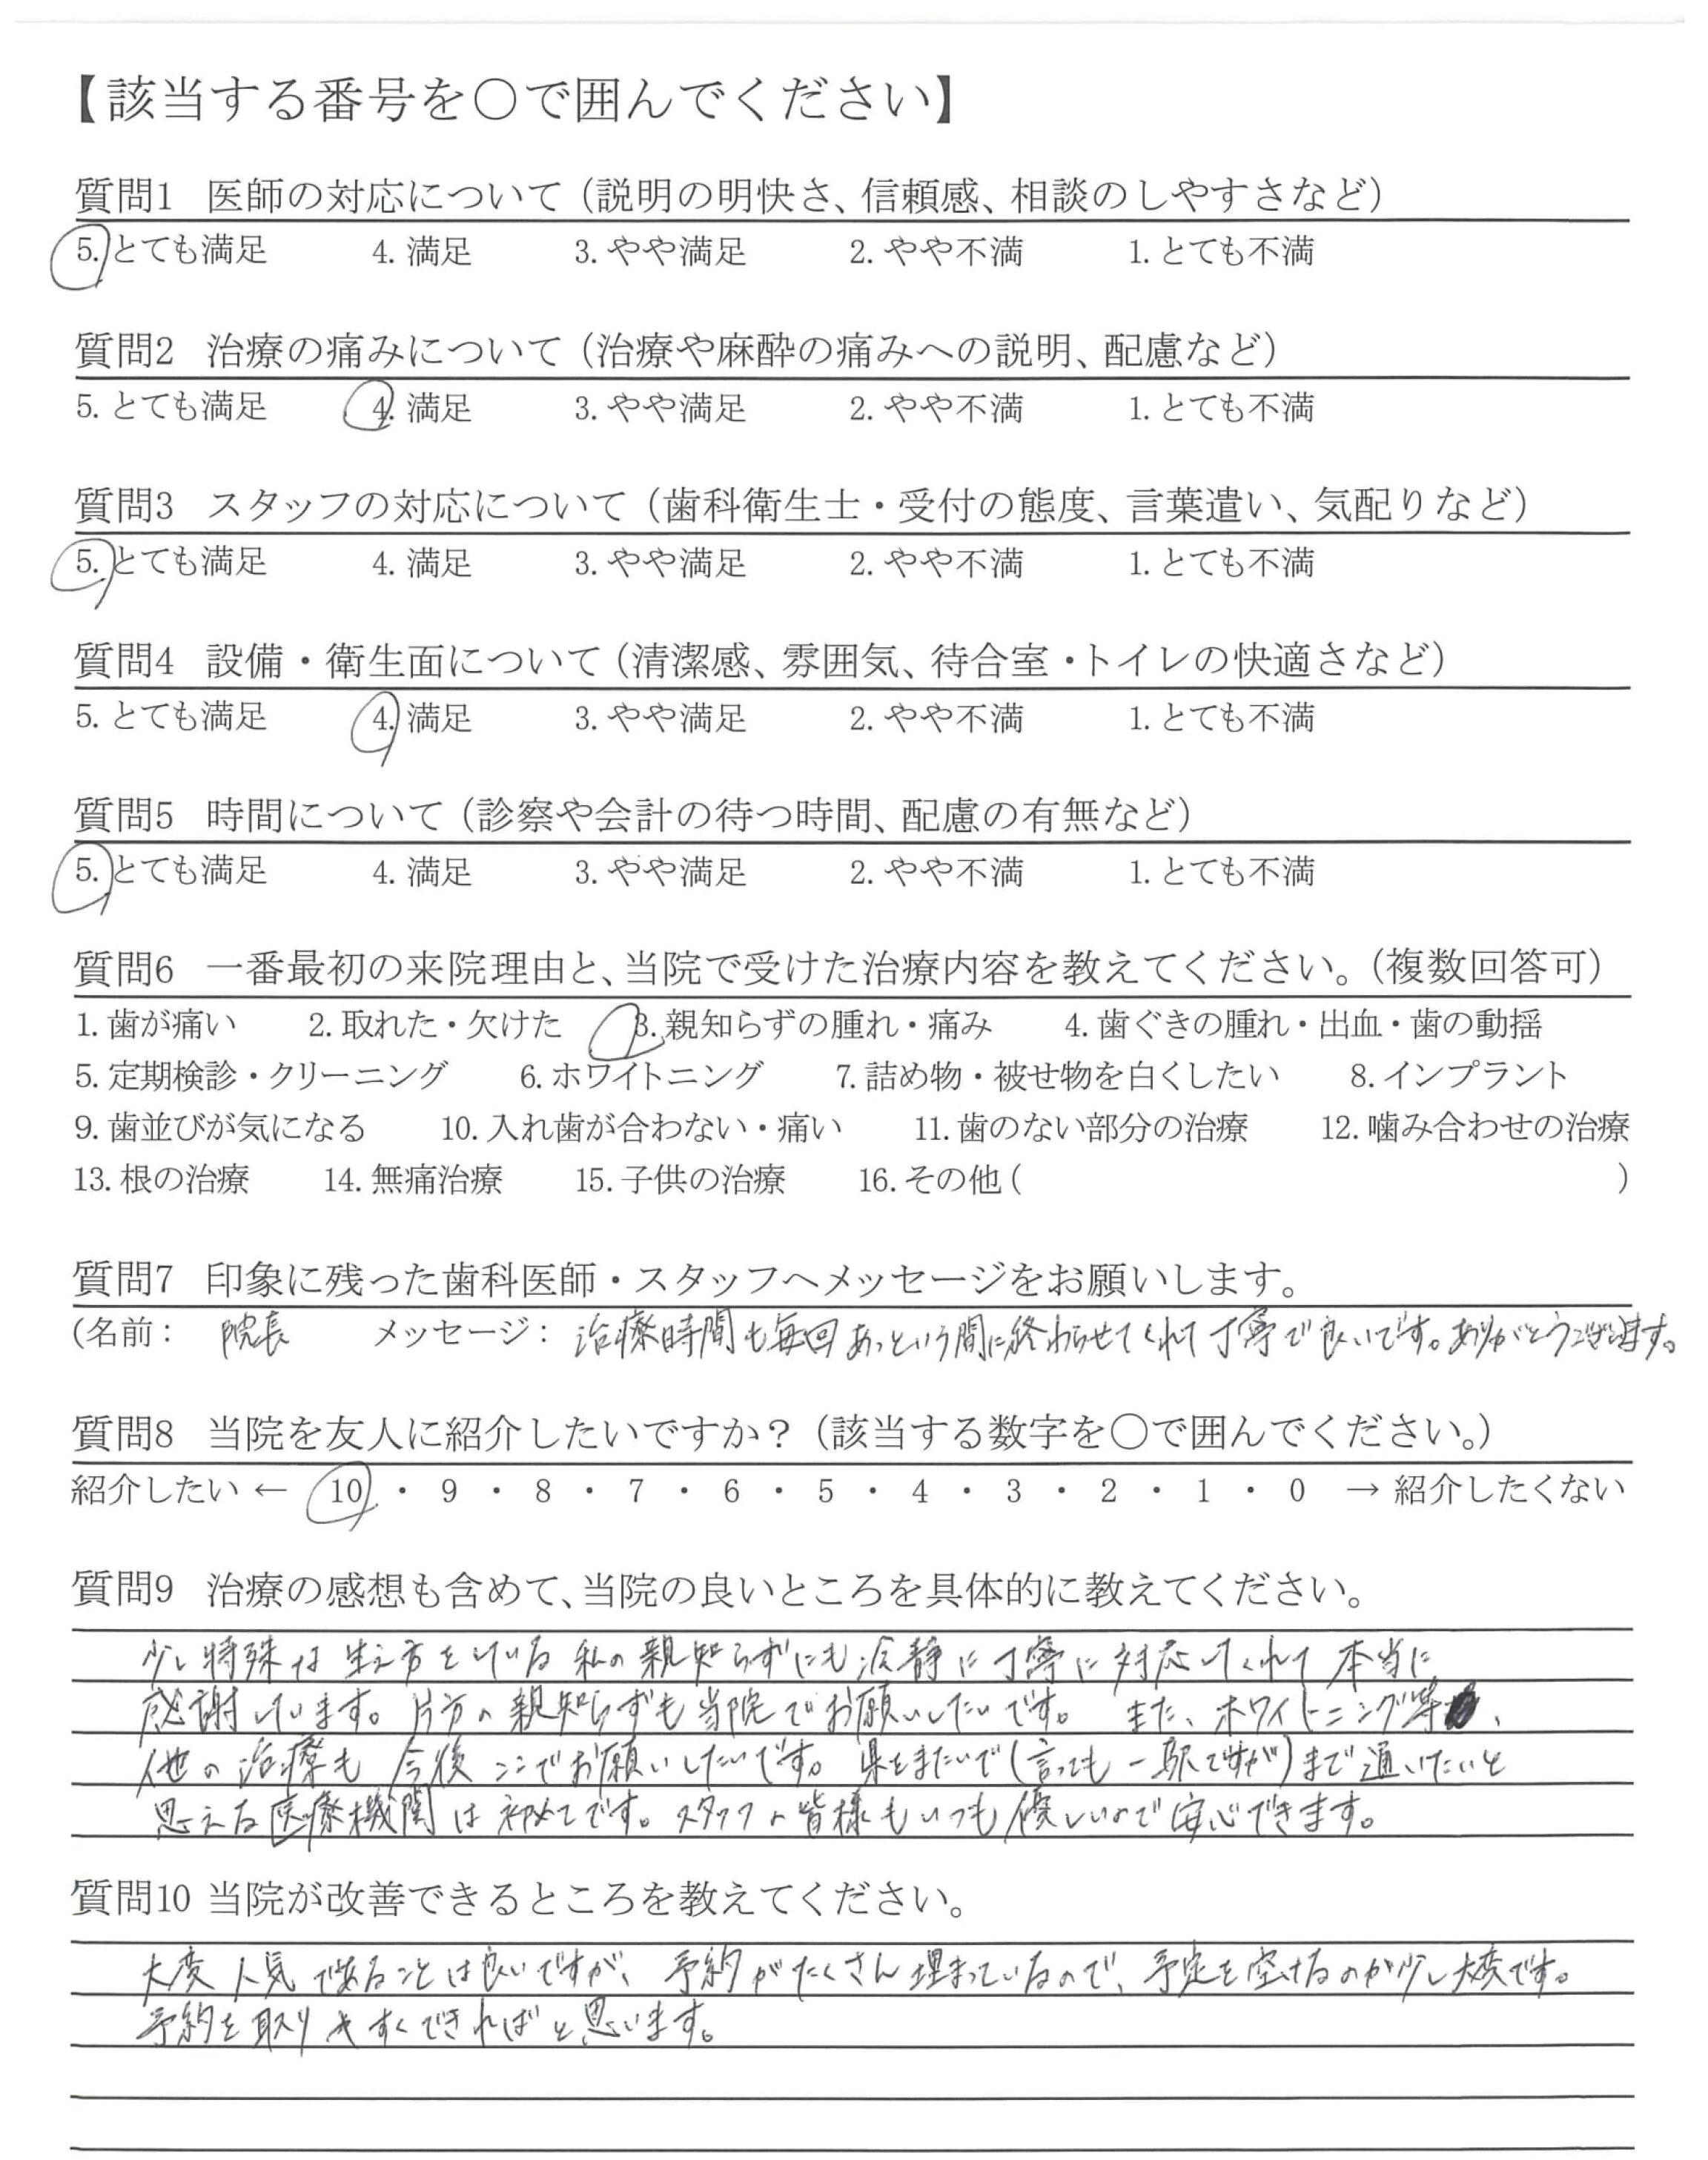 【該当する番号を○で囲んでください】
質問1 医師の対応について（説明の明快さ、信頼感、相談のしやすさなど）
5. とても満足 4. 満足 3. やや満足 2. やや不満 1. とても不満
質問2 治療の痛みについて（治療や麻酔の痛みへの説明、配慮など）
5. とても満足 4. 満足 3. やや満足 2. やや不満 1. とても不満
質問3 スタッフの対応について（歯科衛生士・受付の態度、言葉遣い、気配りなど）
5. とても満足 4. 満足 3. やや満足 2. やや不満 1. とても不満
質問4 設備・衛生面について（清潔感、雰囲気、待合室・トイレの快適さなど）
5. とても満足 4. 満足 3. やや満足 2. やや不満 1. とても不満
質問5 時間について（診察や会計の待つ時間、配慮の有無など）
5. とても満足 4. 満足 3. やや満足 2. やや不満 1. とても不満
質問6 一番最初の来院理由と、当院で受けた治療内容を教えてください。（複数回答可）
1. 歯が痛い 2. 取れた・欠けた 3. 親知らずの腫れ・痛み 4. 歯ぐきの腫れ・出血・歯の動揺
5. 定期検診・クリーニング 6. ホワイトニング 7. 詰め物・被せ物を白くしたい 8. インプラント
9. 歯並びが気になる 10. 入れ歯が合わない・痛い 11. 歯のない部分の治療 12. 噛み合わせの治療
13. 根の治療 14. 無痛治療 15. 子供の治療 16. その他（ ）
質問7 印象に残った歯科医師・スタッフへメッセージをお願いします。
（名前： 院長 メッセージ： 治療時間も毎回あっという間に終わらせてくれて丁寧で良いです。ありがとうございます。
質問8 当院を友人に紹介したいですか？（該当する数字を○で囲んでください。）
紹介したい ← 10 ・ 9 ・ 8 ・ 7 ・ 6 ・ 5 ・ 4 ・ 3 ・ 2 ・ 1 ・ 0 → 紹介したくない
質問9 治療の感想も含めて、当院の良いところを具体的に教えてください。
少し特殊な生え方をしている私の親知らずにも冷静に丁寧に対応してくれて本当に
感謝しています。片方の親知らずも当院でお願いしたいです。 また、ホワイトニング等、
他の治療も今後ここでお願いしたいです。県をまたいで（言っても一駅ですが）まで通いたいと
思える医療機関は初めてです。スタッフの皆様もいつも優しいので安心できます。
質問10 当院が改善できるところを教えてください。
大変人気であることは良いですが、予約がたくさん埋まっているので、予定を空けるのが少し大変です。
予約を取りやすくできればと思います。